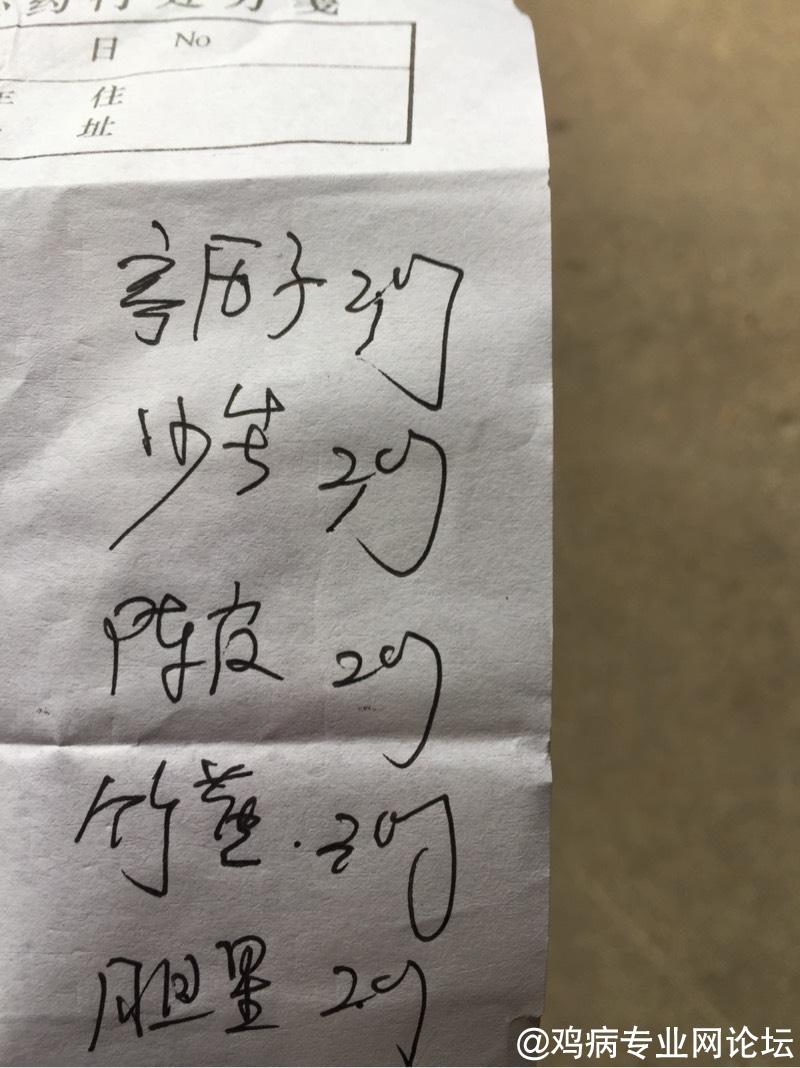 药行处方笺
日 No
住
址
亭历子 20g
20g
陈皮 20g
竹黄 . 20g
胆星 20g
@鸡病专业网论坛